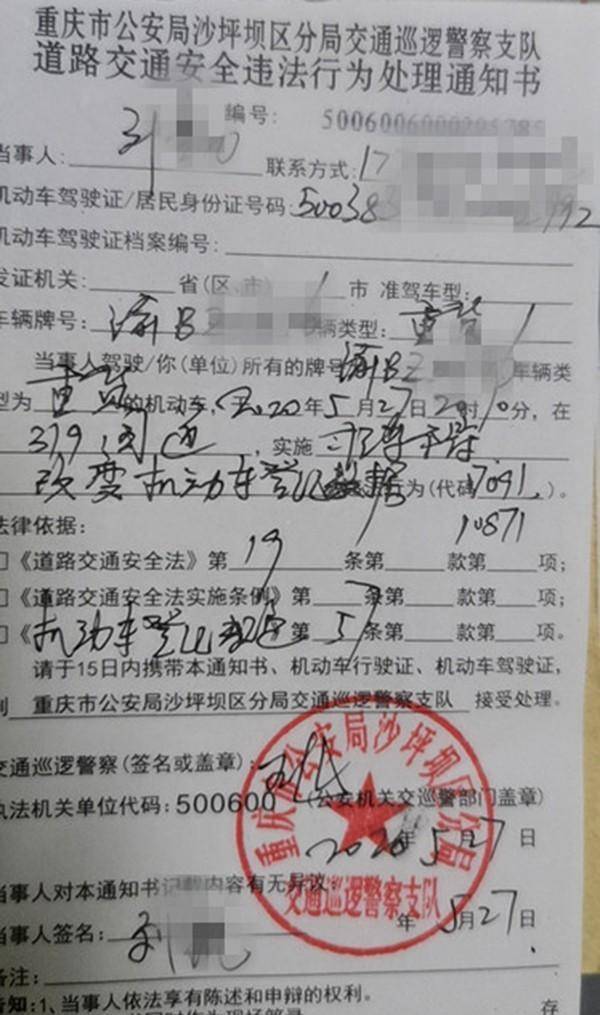 重庆市公安局沙坪坝区分局交通巡逻警察支队
道路交通安全违法行为处理通知书
编号: 5006006000205785
当事人: 刘
联系方式: 17
机动车驾驶证/居民身份证号码: 50038 2192
机动车驾驶证档案编号:
发证机关: 省(区、市) 市 准驾车型:
车辆牌号: 渝B 车辆类型: 重
当事人驾驶/你(单位)所有的牌号 渝B 车辆类
型为 重 的机动车, 于2020年5月27日2 时10分, 在
319 , 实施
改变机动车登记 行为(代码 7091 )。
10871
法律依据:
□《道路交通安全法》第 19 条第 款第 项;
□《道路交通安全法实施条例》第 条第 款第 项;
□《机动车登记 第 57 条第 款第 项。
请于15日内携带本通知书、机动车行驶证、机动车驾驶证,
到 重庆市公安局沙坪坝区分局交通巡逻警察支队 接受处理。
交通巡逻警察(签名或盖章): 王
执法机关单位代码: 500600 (公安机关交巡警部门盖章)
2020年5月27日
重庆市公安局沙坪坝区分局
交通巡逻警察支队
当事人对本通知书记载内容有无异议:
当事人签名: 刘 年5月27日
备注:
告知: 1、当事人依法享有陈述和申辩的权利。
存